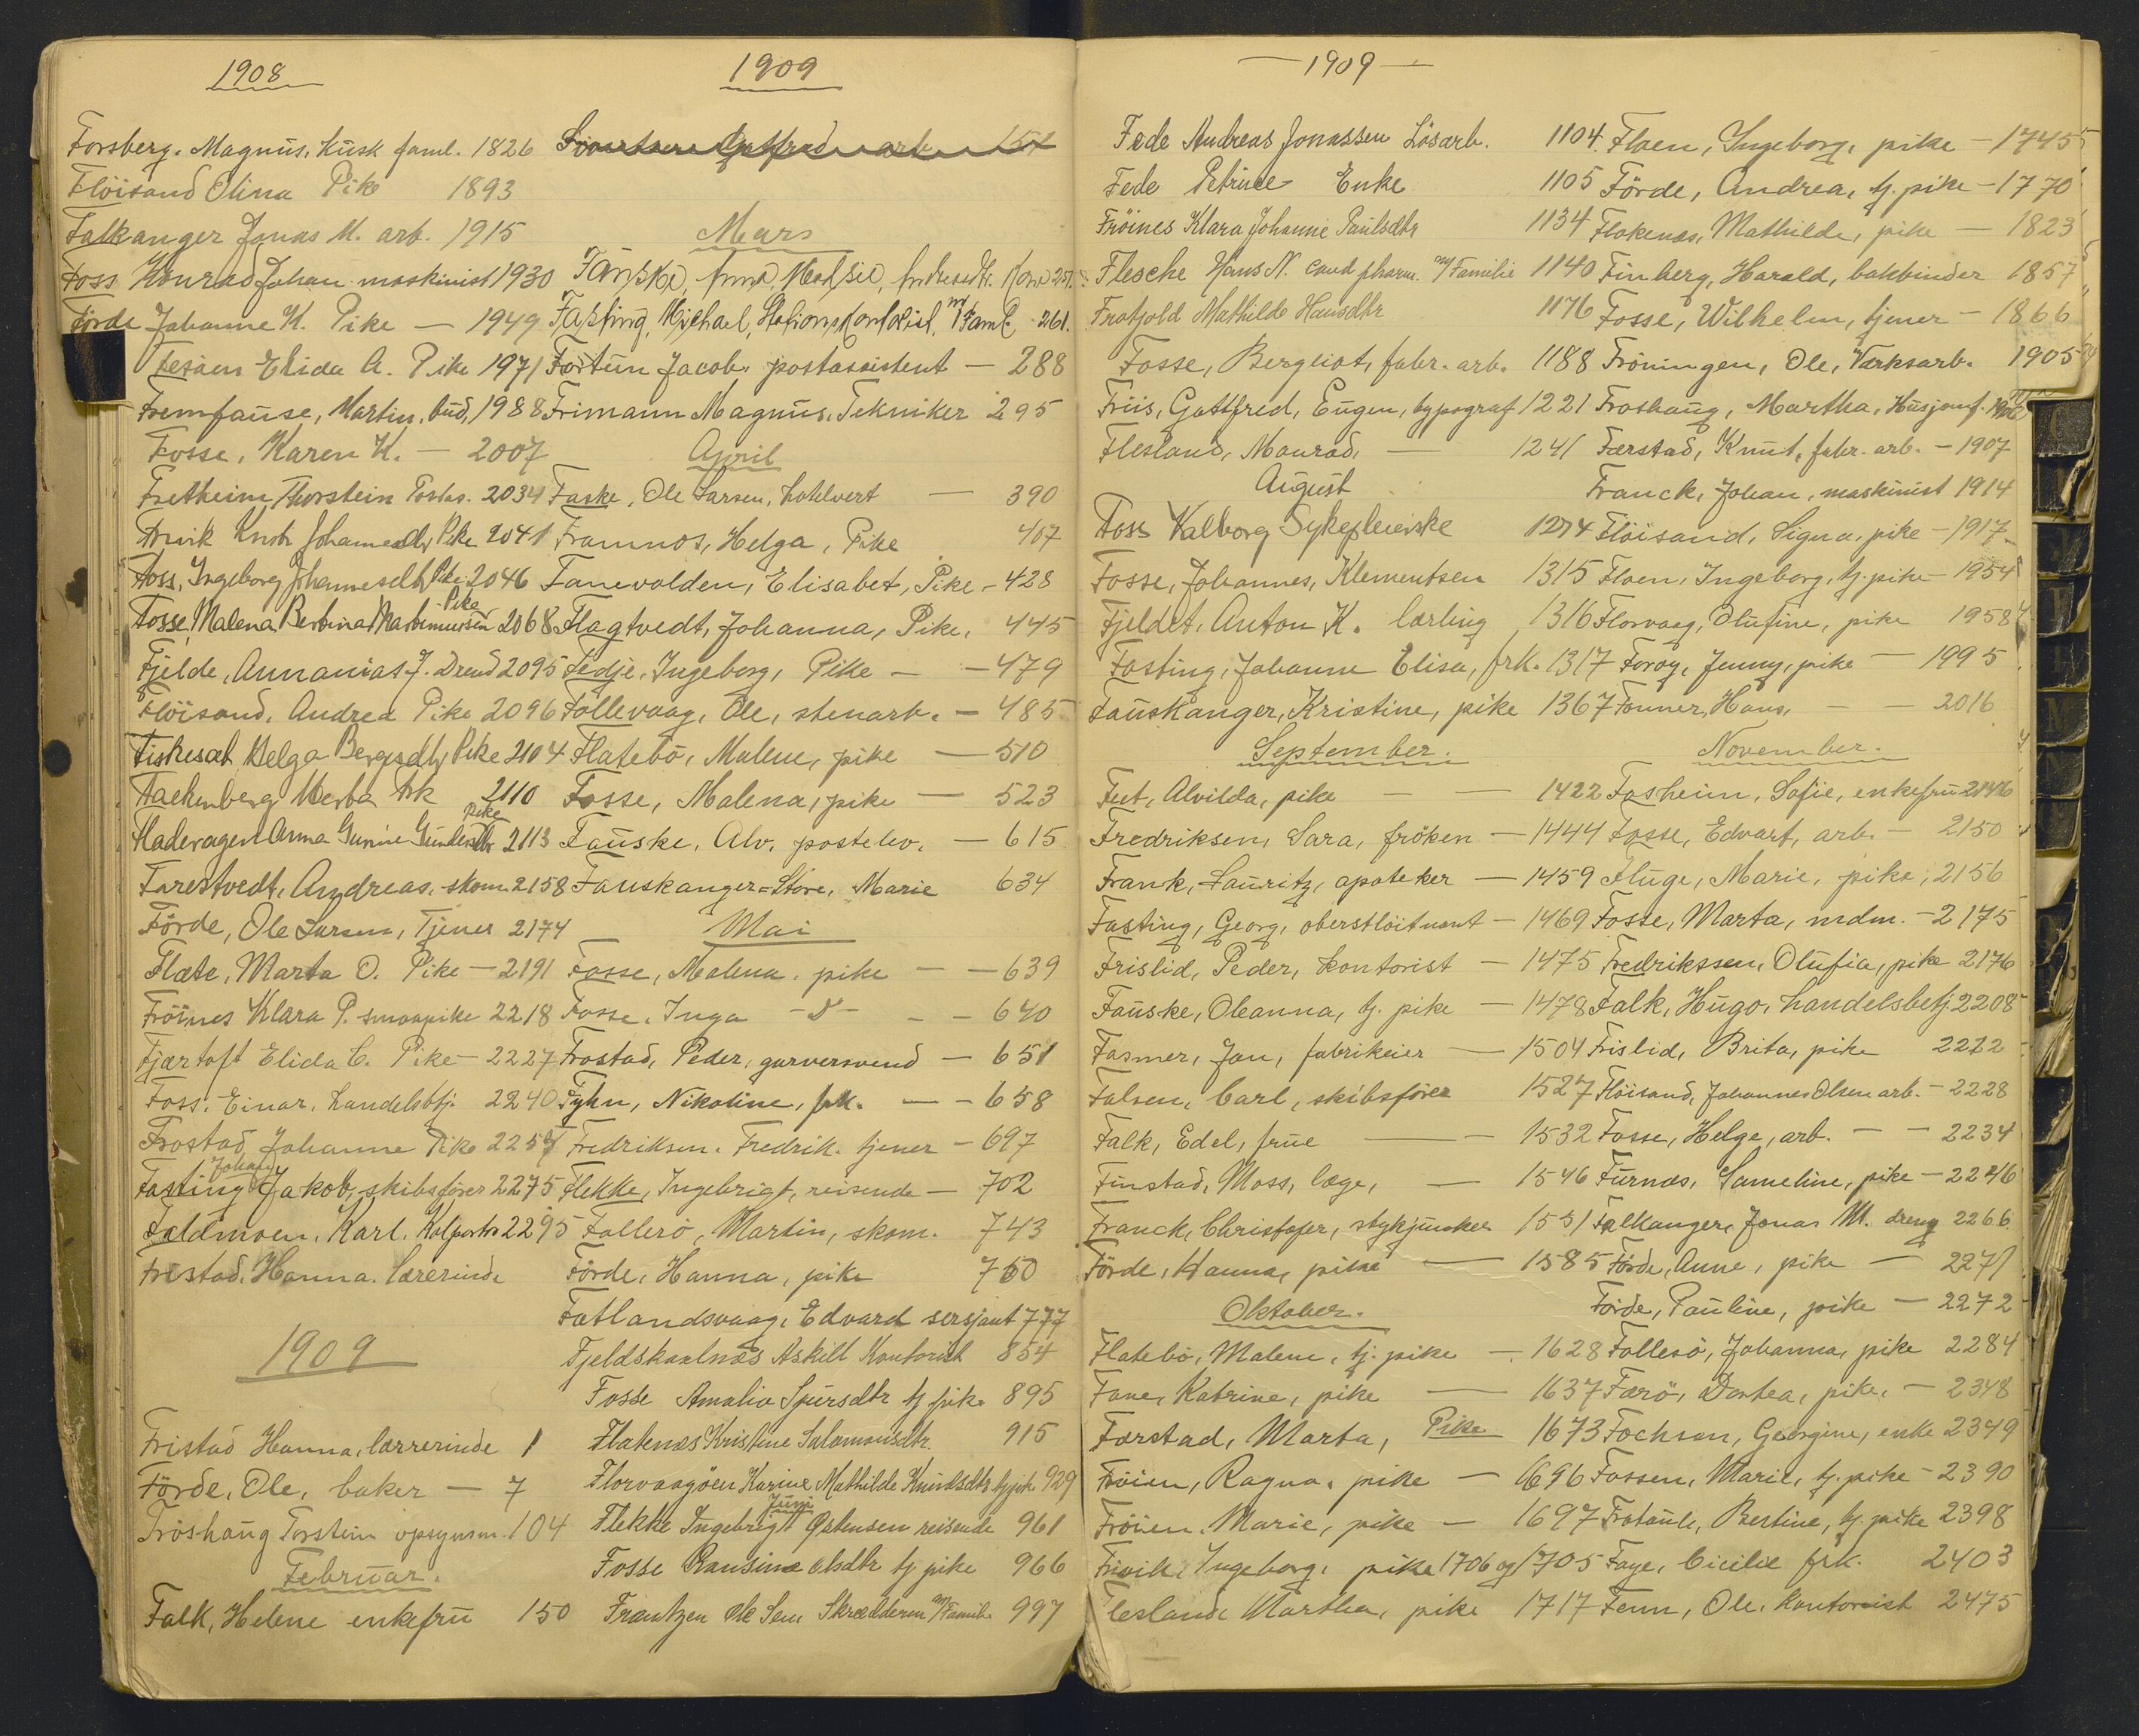 1908
Forsberg. Magnus, Kusk faml. 1826
Flöisand Olina Pike 1893
Falkanger Jonas M. arb. 1915
Foss Konrad Johan maskinist 1930
Förde Johanne K. Pike — 1949
Elida A. Pike 1971
Fremfause, Martin, bud, 1988
Fosse, Karen K. — 2007
Fretheim Thorstein Postas. 2034
Johannesdtr Pike 2041
Foss, Ingeborg Johannesdtr Pike 2046
Fosse, Malena Berbina Pike 2068
Fjelde, Annanias J. 2095
Flöisand, Andrea Pike 2096
Fiskesæt Helga Pike 2104
2110
Anna Gurine Pike 2113
Farestvedt, Andreas, skom 2158
Förde, Ole Larsen, Tjener 2174
Flæte, Marta O. Pike — 2191
Fröines Klara P. smaapike 2218
Fjærtoft Elida C. Pike — 2227
Foss, Einar, handelsbtj. 2240
Frostad Johanne Pike 2257
Fasting Johan Jakob, skibsfører 2275
Faldmoen, Karl. 2295
Fristad, Hanna. lærerinde
1909
Fristad Hanna, lærrerinde 1
Förde, Ole, baker — 7
Fröshaug Torstein opsynsm. 104
Februar.
Falk, Helene enkefru 150
1909
Mars
Anna 251
Fasting, Michael, m/Faml. 261.
Fortun Jacob, postassistent — 288
Frimann Magnus, Tekniker 295
April
Faske, Ole Larsen, — 390
Framnos, Helga, Pike 407
Fanevolden, Elisabet, Pike — 428
Flagtvedt, Johanna, Pike, 445
Fedje, Ingeborg, Pike — — 479
Follevaag, Ole, stenarb. — 485
Flatebö, Malene, pike — 510
Fosse, Malena, pike — 523
Fauske, Alv. postelev. — 615
Fauskanger=Störe, Marie 634
Mai
Fosse, Malena, pike — — 639
Fosse, Inga — — 640
Frostad, Peder, garversvend — 651
Fyhn, Nikoline, frk. — — 658
Fredriksen, Fredrik. tjener — 697
Flekke, Ingebrigt, reisende — 702
Follerö, Martin, skom. 743
Förde, Hanna, pike 760
Fatlandsvaag, Edvard sersjant 777
Fjeldskaalnæs Askill Kontorist 854
Fosse Amalia Sjursdtr tj pike 895
Flatenæs Kristine Salamonsdtr. 915
Florvaagöen Karine Mathilde Knudsdtr tj pike 929
Juni
Flekke Ingebrigt Østensen reisende 961
Fosse Ransine Olsdtr tj pike 966
Frantzen Ole Sem Skrædderm m/Familie 997
— 1909 —
Fede Andreas Jonassen Lösarb. 1104
Fede Petrine Enke 1105
Fröines Klara Johanne Paulsdtr 1134
Flesche Hans N. Cand pharm. m/Familie 1140
Frotjold Mathilde Hansdtr 1176
Fosse, Bergliot, fabr. arb. 1188
Friis, Gottfred, Eugen, typograf 1221
Flesland, Monrad, — 1241
August
Foss Valborg Sykepleierske 1274
Fosse, Johannes, Klementsen 1315
Fjeldet, Anton K. lærling 1316
Fasting, Johanne Elisa, frk. 1317
Fauskanger, Kristine, pike 1367
September.
Fret, Alvilda, pike — — 1422
Fredriksen, Sara, fröken — 1444
Frank, Lauritz, apoteker — 1459
Fasting, Georg, oberstlöitnant — 1469
Frislid, Peder, kontorist — 1475
Fauske, Oleanna, tj. pike — 1478
Fasmer, Jan, fabrikeier — 1504
Falsen, Carl, skibsförer 1527
Falk, Edel, frue — — 1532
Finstad, Moss, læge, — 1546
Franck, Christofer, stykjunker 1551
Förde, Hanna, pike — 1585
Oktober.
Flatebö, Malene, tj. pike — 1628
Fane, Katrine, pike — 1637
Færstad, Marta, Pike 1673
Fröien, Ragna, pike — 1696
Fröien, Marie, pike — 1697
Frivik, Ingeborg, pike 1706 og 1705
Flesland, Martha, pike 1717
Floen, Ingeborg, pike — 1745
Förde, Andrea, tj. pike — 1770
Flokenæs, Mathilde, pike — 1823
Finberg, Harald, bokbinder 1857
Fosse, Wilhelm, tjener — 1866
Fröningen, Ole, Værksarb. 1905
Froshaug, Martha, Husjomf.
Færstad, Knut, fabr. arb. — 1907
Franck, Johan, maskinist 1914
Flöisand, Signa, pike — 1917
Floen, Ingeborg, tj. pike — 1954
Florvaag, Olufine, pike 1958
Foröy, Jenny, pike — 1995
Fonner, Hans, — — 2016
November.
Fosheim, Sofie, enkefru 2146
Fosse, Edvart, arb. — 2150
Fluge, Marie, pike, 2156
Fosse, Marta, mdm. — 2175
Fredrikssen, Olufia, pike 2176
Falk, Hugo, handelsbetj. 2208
Frislid, Brita, pike 2212
Flöisand, Johannes Olsen arb. — 2228
Fosse, Helge, arb. — — 2234
Furnæs, Sameline, pike — 2246
Falkanger, Jonas M. dreng 2266
Förde, Anne, pike — 2271
Förde, Pauline, pike — 2272
Follesö, Johanna, pike 2284
Færö, Dortea, pike, — 2348
Fochsen, Georgine, enke 2349
Fossen, Marie, tj. pike — 2390
Bertine, tj. pike 2398
Faye, Cicilie frk. 2403
Fenn, Ole, Kontorist 2475